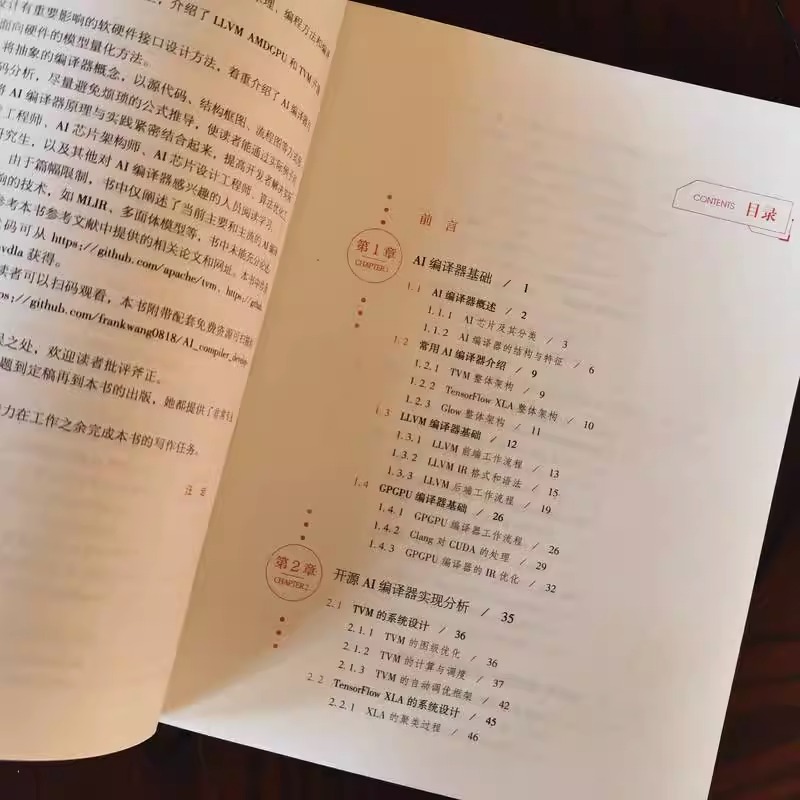 计有重要影响的软硬件接口设计方法，着重介绍了 AI 编译器
介绍了 LLVM AMDGPU 和 TVM
面向硬件的模型量化方法。
将抽象的编译器概念，以源代码、结构框图、流程图等方式
码分析，尽量避免烦琐的公式推导，使读者能通过实际例子
将 AI 编译器原理与实践紧密结合起来，提高开发者解决实际
工程师、AI 芯片架构师、AI 芯片设计工程师、算法优化工
研究生，以及其他对 AI 编译器感兴趣的人员阅读学习。
由于篇幅限制，书中仅阐述了当前主要和主流的 AI 编译
响的技术，如 MLIR、多面体模型等，书中未能充分论述，
参考本书参考文献中提供的相关论文和网址。本书中涉及
代码可从 https://github.com/apache/tvm、https://github.
nvdla 获得。
读者可以扫码观看，本书附带配套免费资源可扫描
https://github.com/frankwang0818/AI_compiler_design
误之处，欢迎读者批评斧正。
题到定稿再到本书的出版，她都提供了非常专业
力在工作之余完成本书的写作任务。
CONTENTS 目录
前言
第1章
CHAPTER 1
AI 编译器基础 / 1
1.1 AI 编译器概述 / 2
1.1.1 AI 芯片及其分类 / 3
1.1.2 AI 编译器的结构与特征 / 6
1.2 常用 AI 编译器介绍 / 9
1.2.1 TVM 整体架构 / 9
1.2.2 TensorFlow XLA 整体架构 / 10
1.2.3 Glow 整体架构 / 11
1.3 LLVM 编译器基础 / 12
1.3.1 LLVM 前端工作流程 / 13
1.3.2 LLVM IR 格式和语法 / 15
1.3.3 LLVM 后端工作流程 / 19
1.4 GPGPU 编译器基础 / 26
1.4.1 GPGPU 编译器工作流程 / 26
1.4.2 Clang 对 CUDA 的处理 / 29
1.4.3 GPGPU 编译器的 IR 优化 / 32
第2章
CHAPTER 2
开源 AI 编译器实现分析 / 35
2.1 TVM 的系统设计 / 36
2.1.1 TVM 的图级优化 / 36
2.1.2 TVM 的计算与调度 / 37
2.1.3 TVM 的自动调优框架 / 42
2.2 TensorFlow XLA 的系统设计 / 45
2.2.1 XLA 的聚类过程 / 46